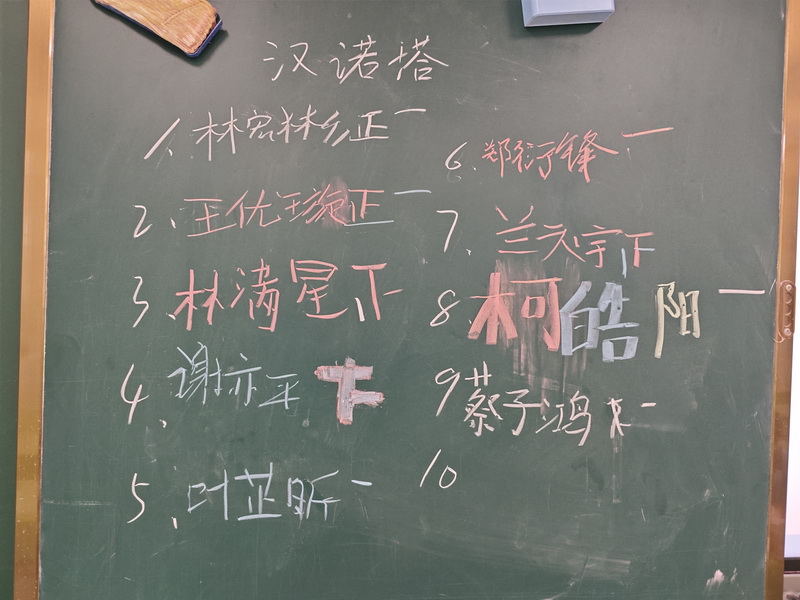 汉诺塔
1、林宏林乡正一
2、王优王旋正一
3、林满星下
4、谢亦平
5、叶芷昕一
6、郑衍锋一
7、兰天宇下
8 柯皓阳一
9 蔡子鸿
10